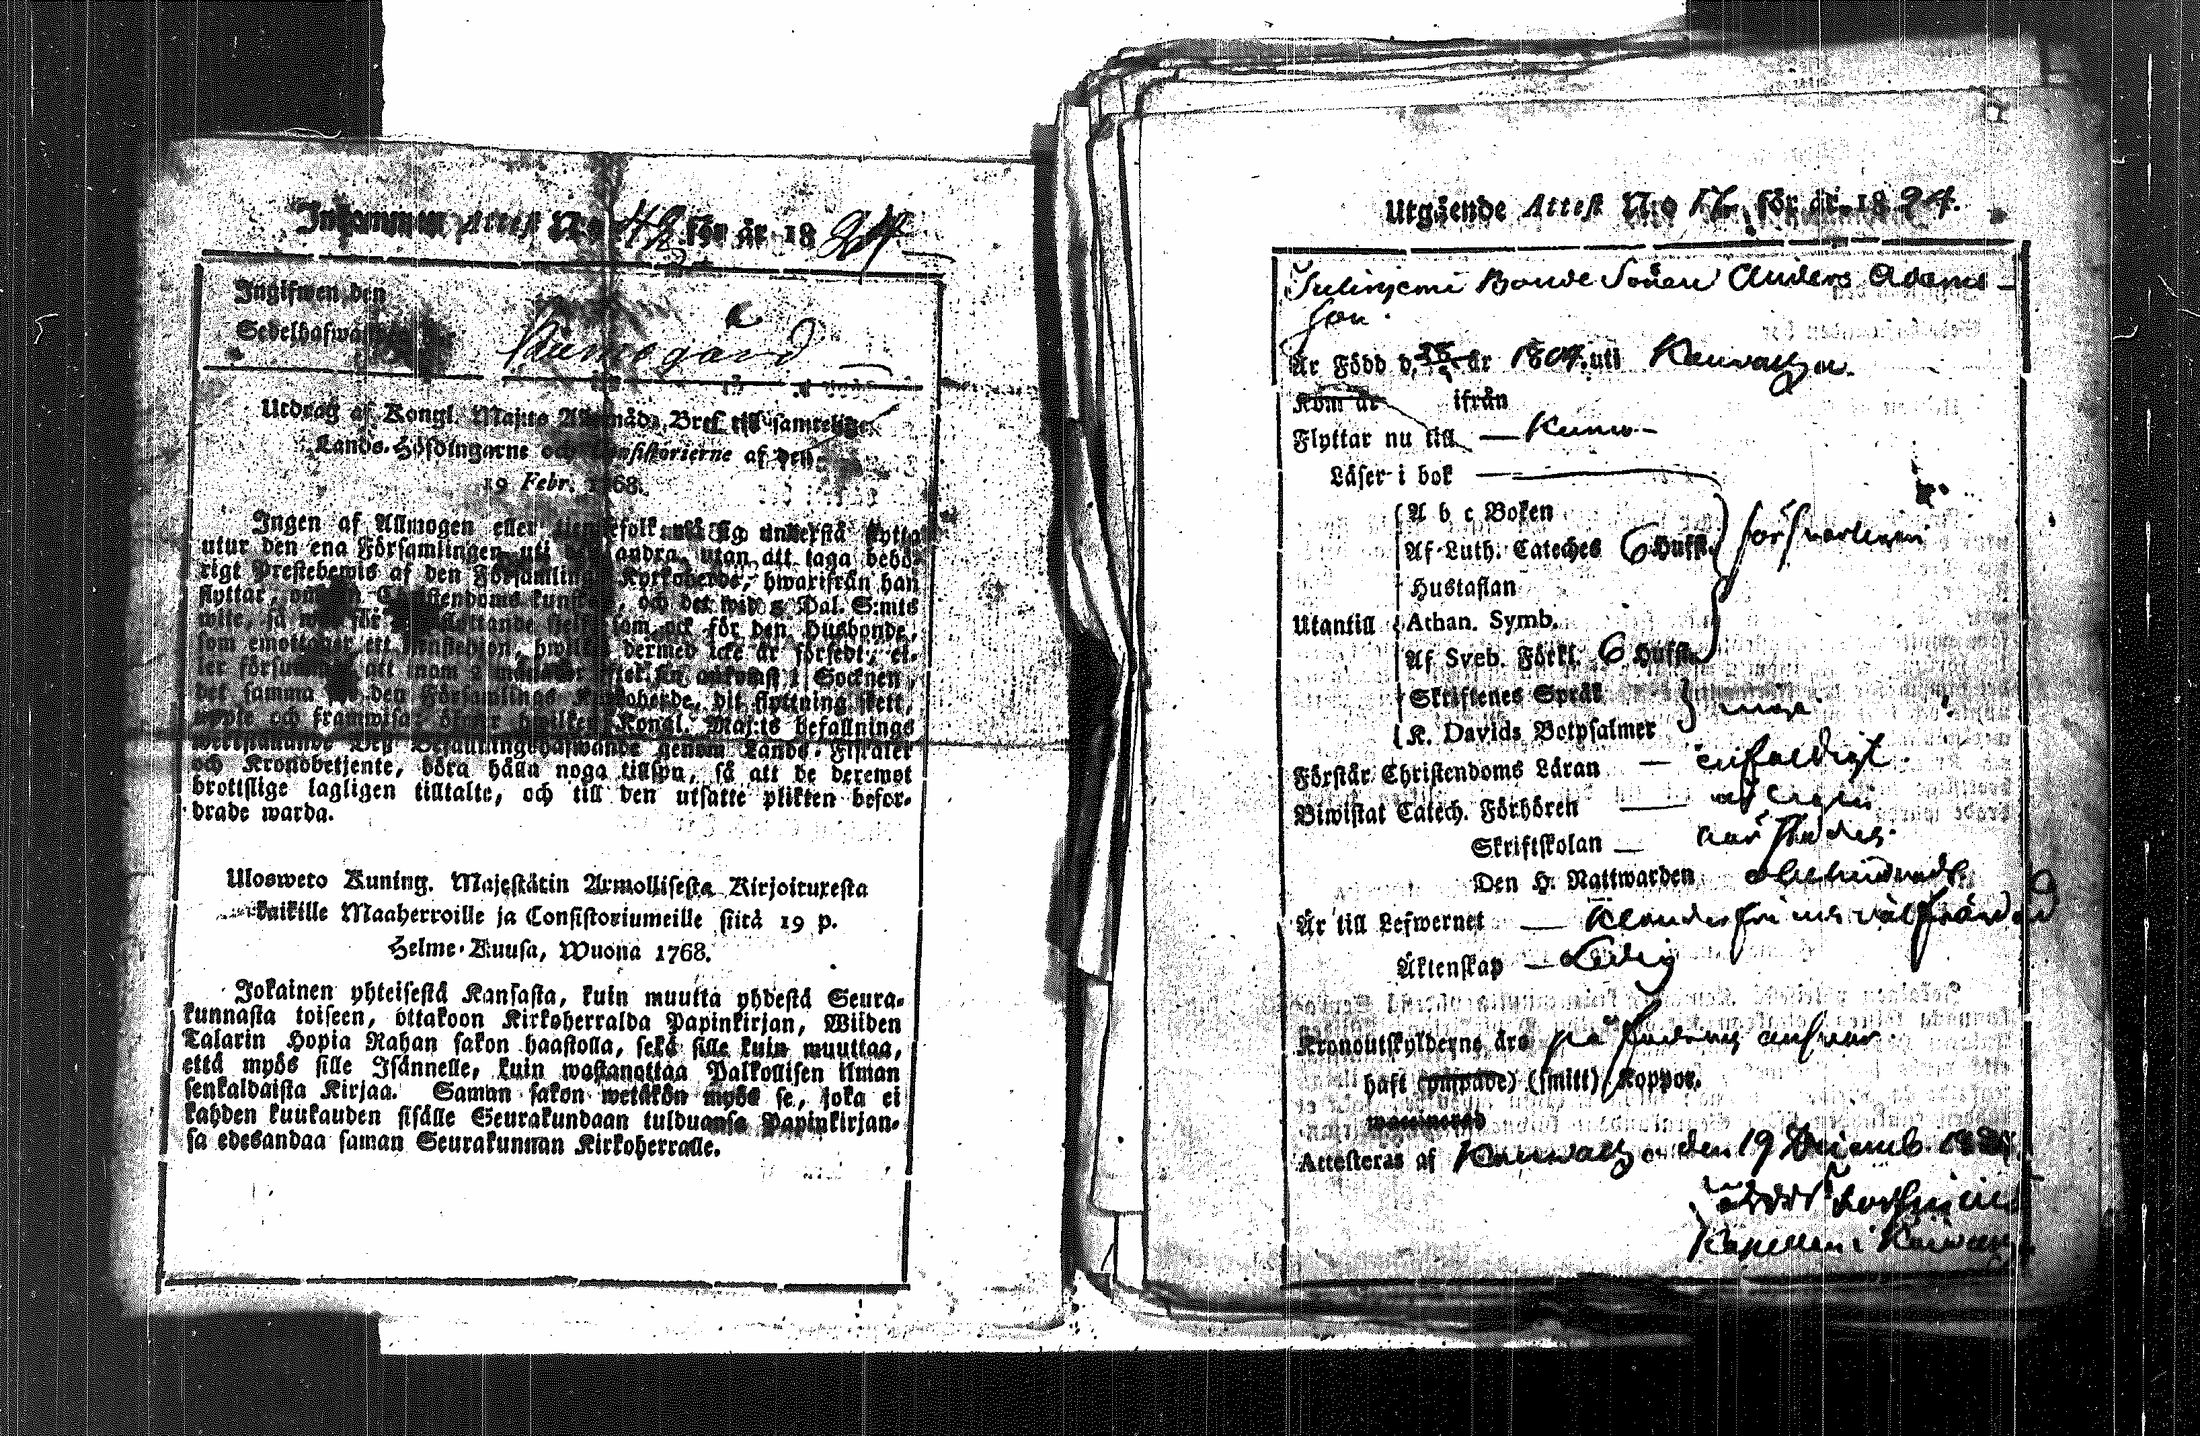 Inkommen Attest No 42 för år 1824
Ingifwen den
Sedelhafwa
Kumogård
Utdrag af Kongl. Maj:ts Allernåd. Bref till samtelige
Lands-Höfdingarne och Consistorierne af den
19 Febr. 1768.
Ingen af Allmogen eller tienstefolk må sig understå flytta
utur den ena Församlingen uti den andra, utan att taga behö-
rigt Prestebewis af den Församlings Kyrkoherde, hwarifrån han
flyttar, om sin Christendoms kunskap, och det wid 5 Dal. S:mts
wite, så wäl för den flyttande sielf som ock för den Husbonde,
som emottager ett tienstehjon, hwilket dermed icke är försedt, el-
ler försummar att inom 2 månader efter sin ankomst i Socknen,
det samma för den Församlings Kyrkoherde, dit flyttning skett,
uppte och framwisa: öfwer hwilken Kongl. Maj:ts befallnings
werkställande Dess Befallningshafwande genom Lands-Fiskaler
och Kronobetjente, böra hålla noga tillsyn, så att de deremot
brottslige lagligen tilltalte, och till den utsatte plikten befor-
drade warda.
Ulosweto Kuning. Majestätin Armollisesta Kirjoituxesta
kaikille Maaherroille ja Consistoriumeille siitä 19 p.
Helme-Kuusa, Wuona 1768.
Jokainen yhteisestä Kansasta, kuin muutta yhdestä Seura-
kunnasta toiseen, ottakoon Kirkoherralda Papinkirjan, Wiiden
Talarin Hopia Rahan sakon haastolla, sekä sille kuin muuttaa,
että myös sille Isännelle, kuin wastanottaa Palkollisen ilman
senkaldaista Kirjaa. Saman sakon wetäkön myös se, joka ei
kahden kuukauden sisälle Seurakundaan tulduansa Papinkirjan-
sa edesandaa saman Seurakunnan Kirkoherralle.
Utgående Attest No 52 för år 1824.
Bonde Sonen Anders Adams-
son.
Är Född d. år 1804 uti Keuwatzsa.
Kom år ifrån
Flyttar nu till — Kumo —
Läser i bok
A b c Boken
Af Luth. Cateches 6 Hufst. försvarligen
Hustaflan
Utantill Athan. Symb.
Af Sveb. Förkl. 6 Hufst.
Skriftenes Språk
K. Davids Botpsalmer
Förstår Christendoms Läran — enfaldigt
Biwistat Catech. Förhören —
Skriftskolan —
Den H. Nattwarden obehindradt.
Är till Lefwernet — klanderfri och välfrändad
Äktenskap — Ledig
Kronoutskylderne äro på Fadrens answar
haft (ympade) (smitt) Koppor.
waccinerad
Attesteras af Keuwatzsa den 19 Decemb. 1824.
Kapellan i